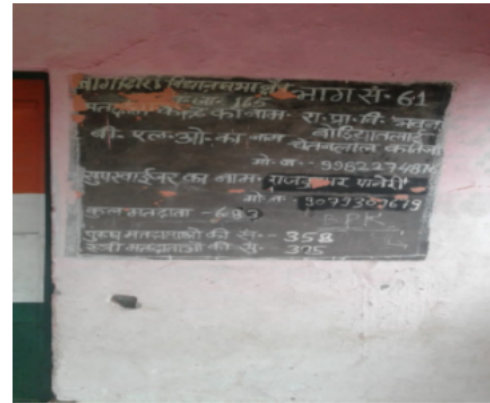 बागीदौरा विधानसभा क्षेत्र भाग सं. 61
165
मतदान केन्द्र का नाम- रा. प्रा. वि. भवन
बोडियातलाई
बी. एल. ओ. का नाम चेतनलाल
मो. न. -- 9982274876
सुपरवाईजर का नाम- राजकुमार पानेरी
मो. न.
कुल मतदाता - 683
BPK
पुरुष मतदाताओ की सं. -- 358
स्त्री मतदाताओ की सं. 325